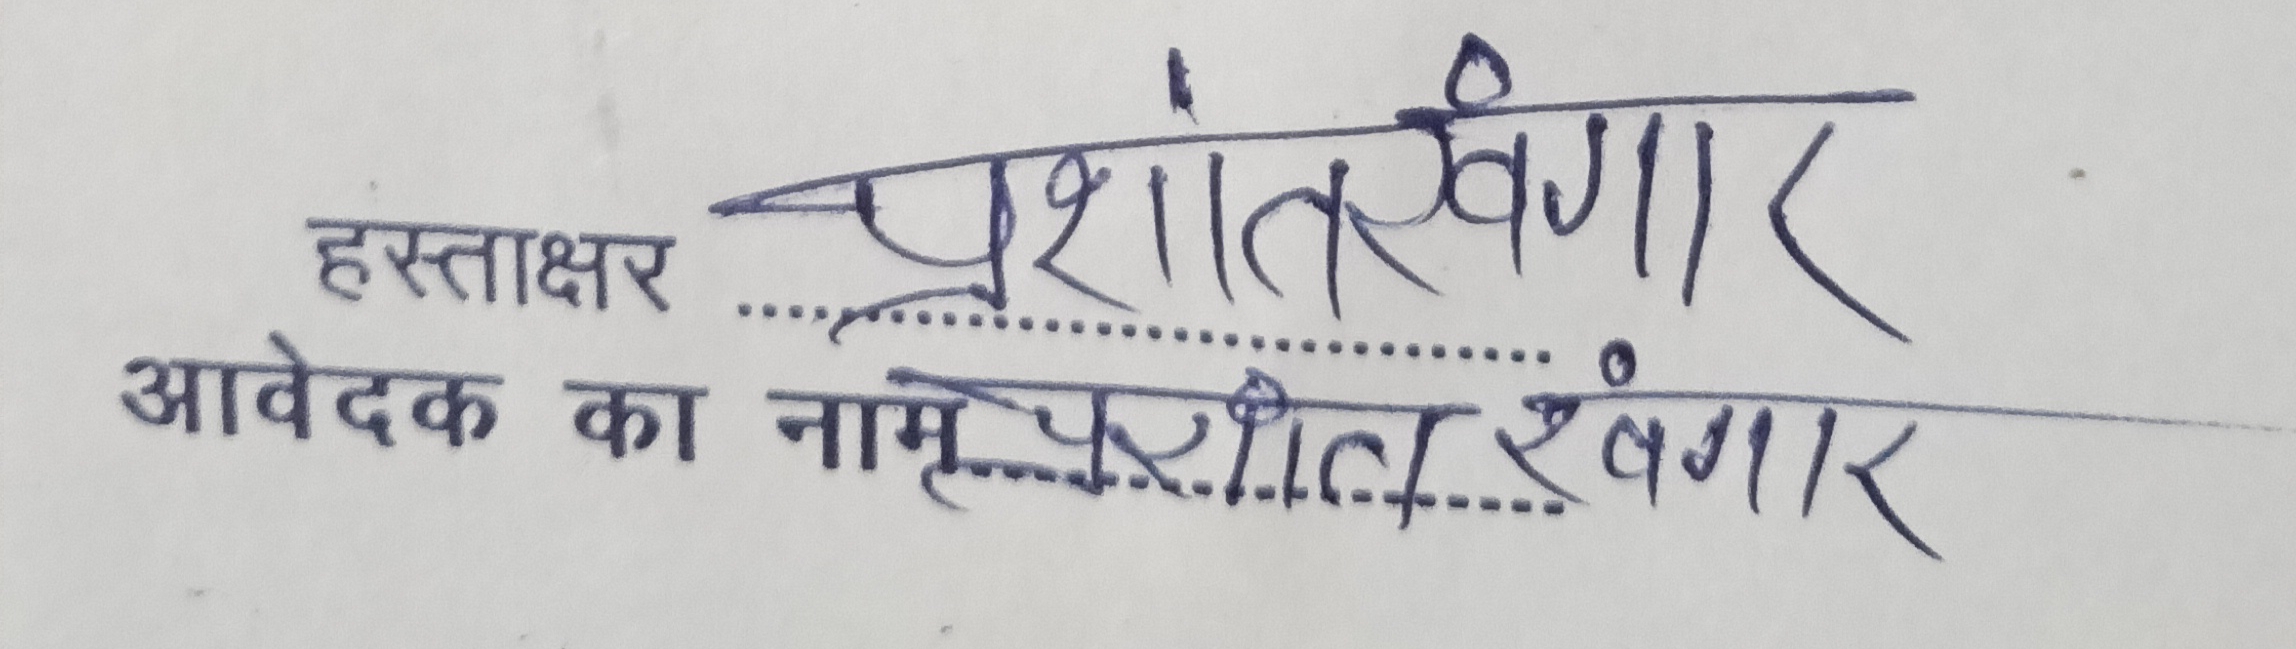 हस्ताक्षर प्रशांत खंगार
आवेदक का नाम प्रशांत खंगार